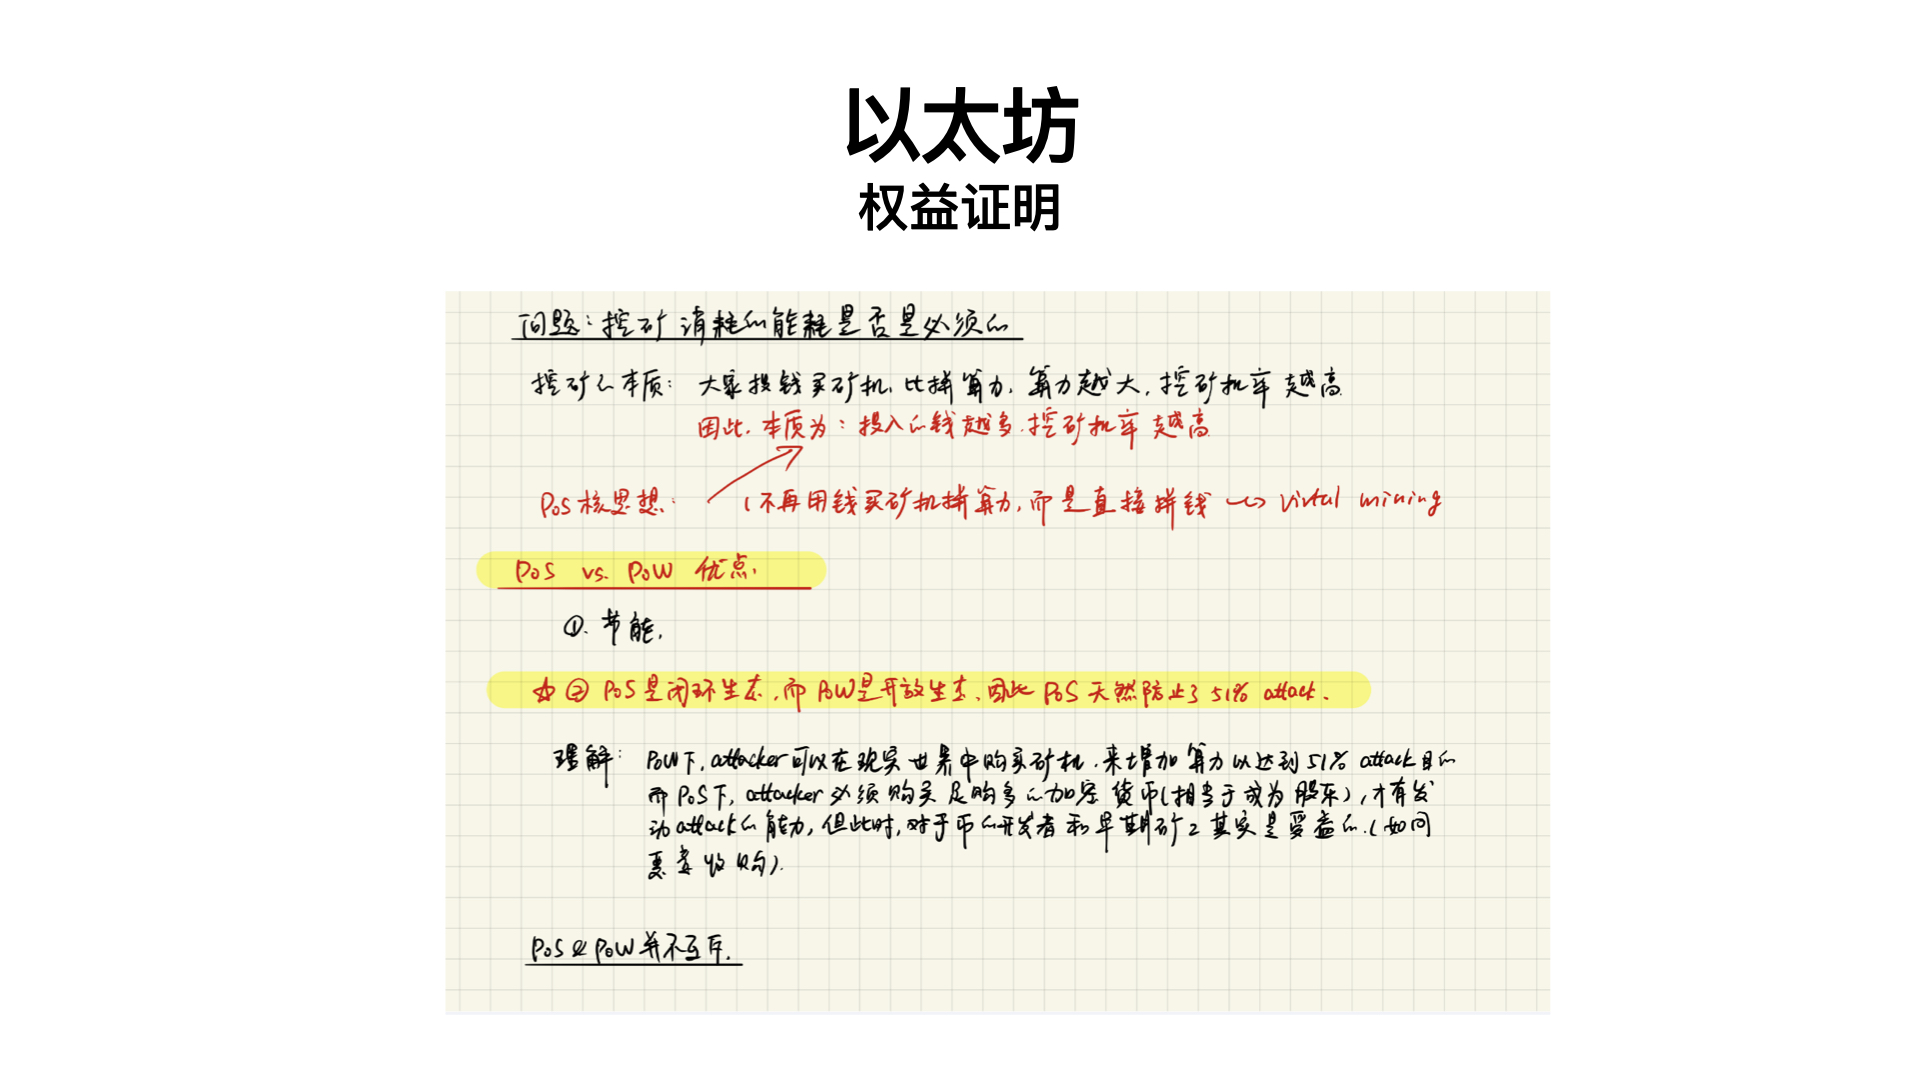 以太坊
权益证明
问题：挖矿消耗的能耗是否是必须的
挖矿的本质： 大家投钱买矿机，比拼算力，算力越大，挖矿机率越高
因此，本质为：投入的钱越多，挖矿机率越高
PoS核思想： (不再用钱买矿机拼算力，而是直接拼钱 ~> virtul mining
PoS vs. PoW 优点.
①. 节能.
☆ ② PoS是闭环生态，而PoW是开放生态，因此PoS天然防止了51% attack.
理解： PoW下，attacker可以在现实世界中购买矿机，来增加算力以达到51% attack目的
而PoS下，attacker必须购买足够多的加密货币(相当于成为股东)，才有发
动attack的能力，但此时，对于币的开发者和早期矿工其实是受益的.(如同
恶意收购).
PoS & PoW并不互斥.